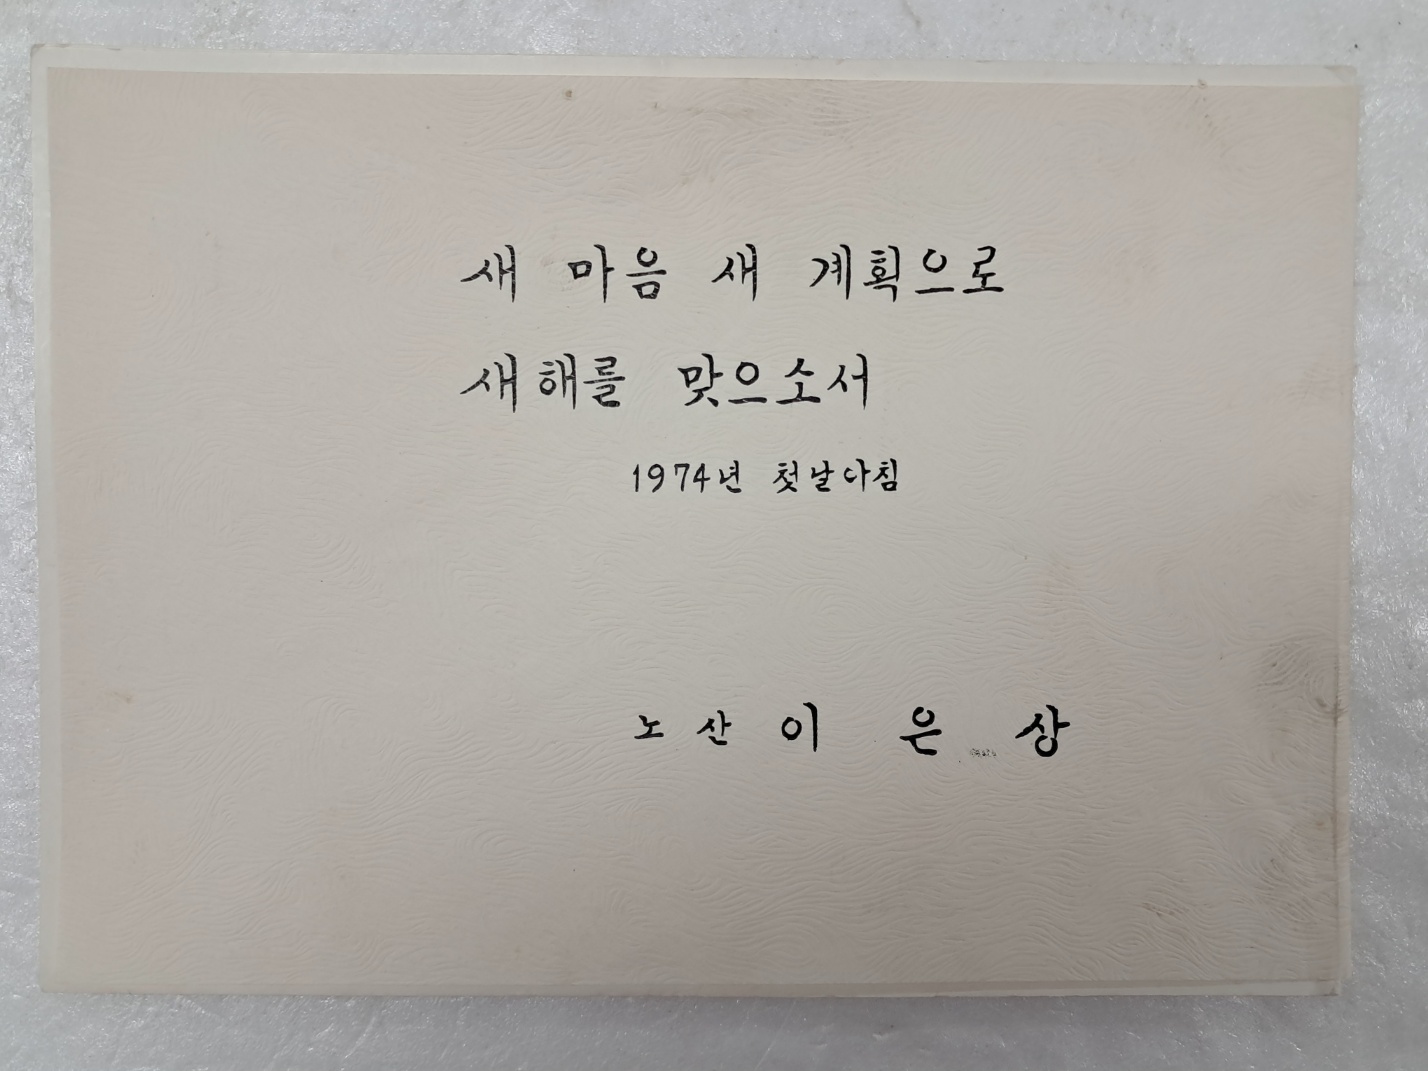 새 마음 새 계획으로
새해를 맞으소서
1974년 첫날아침
노산 이 은 상